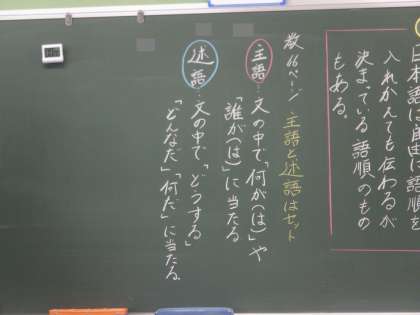 日本語は自由に語順を
入れかえても伝わるが
決まっている語順のもの
もある。
教66ページ 主語と述語はセット
主語…文の中で「何が(は)」や
「誰が(は)」に当たる
述語…文の中で「どうする」
「どんなだ」「何だ」に当たる